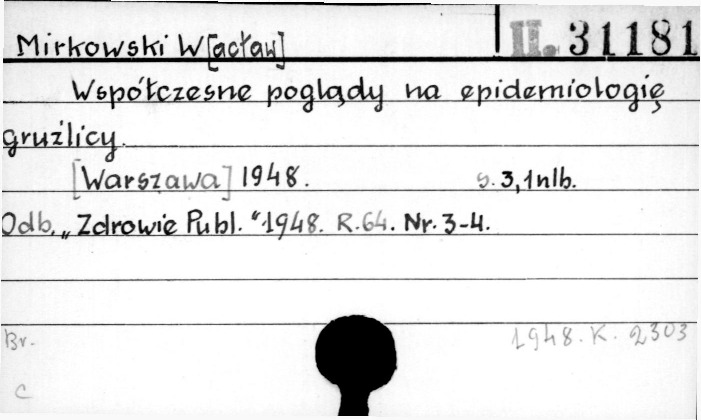 Mirkowski W[acław] II. 31181
Współczesne poglądy na epidemiologię
gruźlicy.
[Warszawa] 1948. s. 3, 1 nlb.
Odb. „Zdrowie Publ." 1948. R. 64. Nr. 3-4.
Br. 1948. K. 2303
C